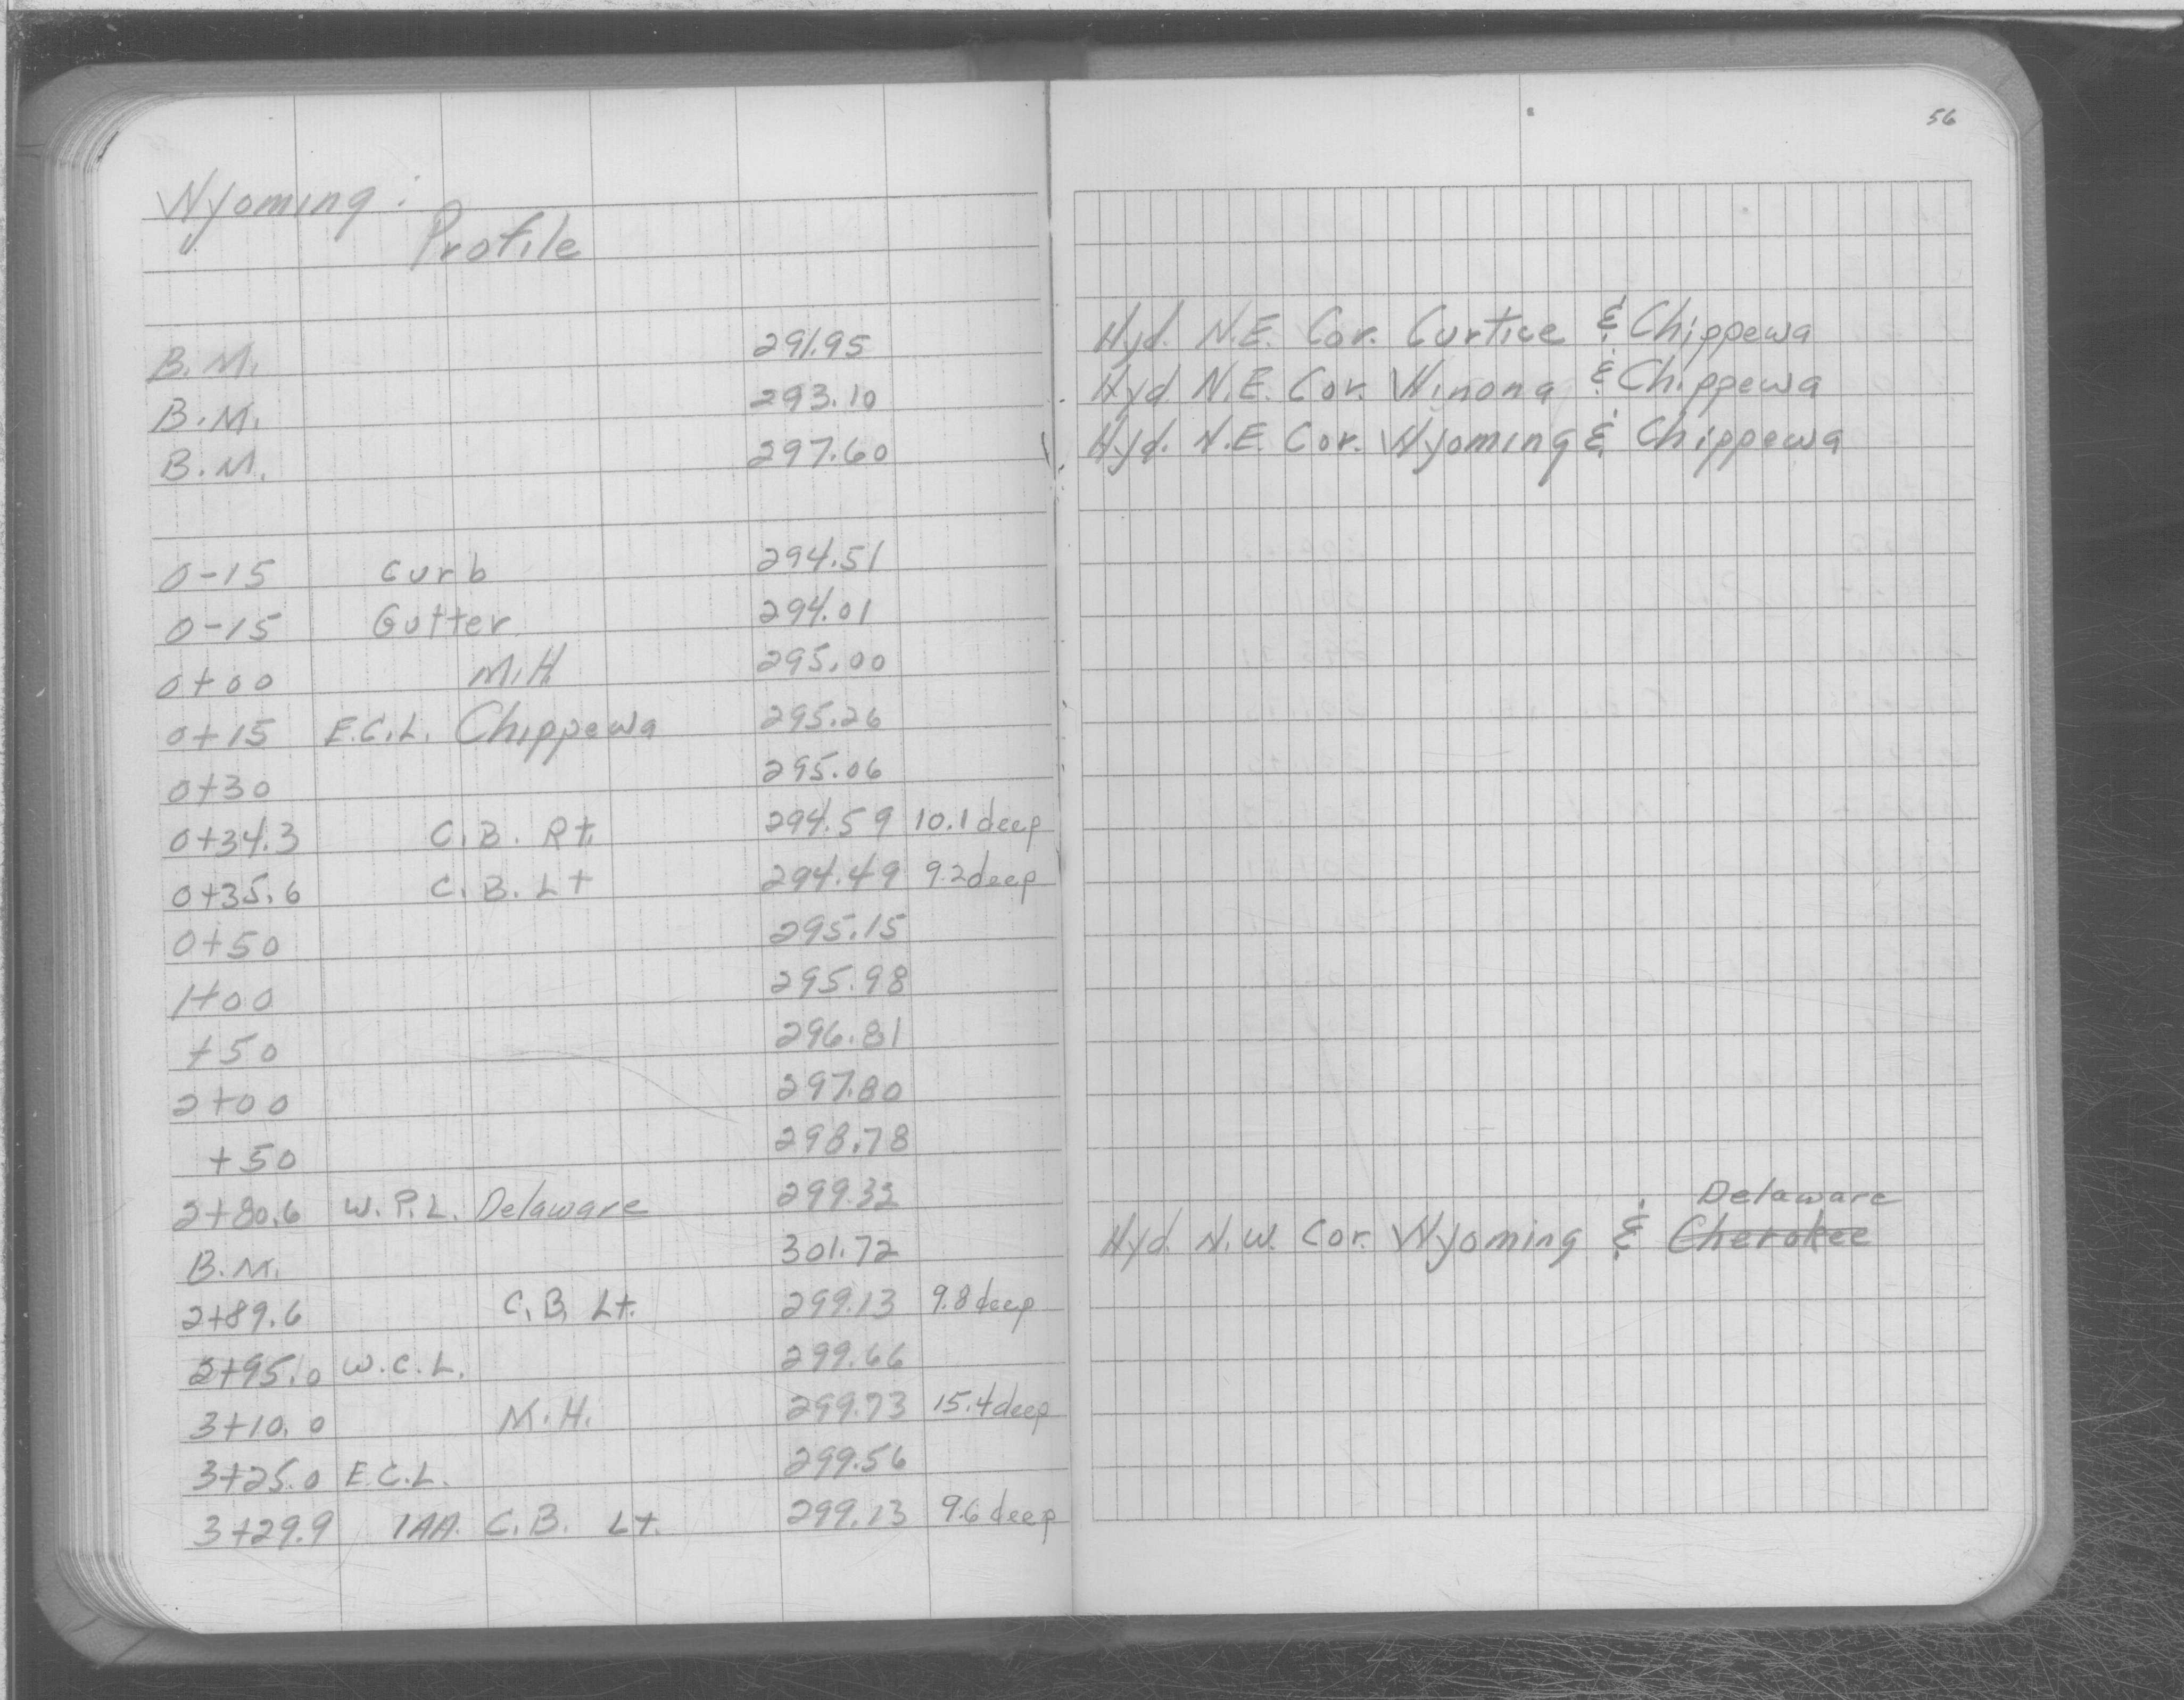 56
Wyoming:
Profile
B.M. 291.95 Hyd. N.E. Cor. Curtice & Chippewa
B.M. 293.10 Hyd N.E. Cor. Winona & Chippewa
B.M. 297.60 Hyd. N.E. Cor. Wyoming & Chippewa
0-15 Curb 294.51
0-15 Gutter 294.01
0+00 M.H. 295.00
0+15 E.C.L. Chippewa 295.26
0+30 295.06
0+34.3 C.B. Rt. 294.59 10.1 deep
0+35.6 C.B. Lt 294.49 9.2 deep
0+50 295.15
1+00 295.98
+50 296.81
2+00 297.80
+50 298.78
2+80.6 W.P.L. Delaware 299.32
Delaware
B.M. 301.72 Hyd. N.W. Cor. Wyoming & Cherokee
2+89.6 C.B. Lt. 299.13 9.8 deep
2+95.0 W.C.L. 299.66
3+10.0 M.H. 299.73 15.4 deep
3+25.0 E.C.L. 299.56
3+29.9 C.B. Lt. 299.13 9.6 deep